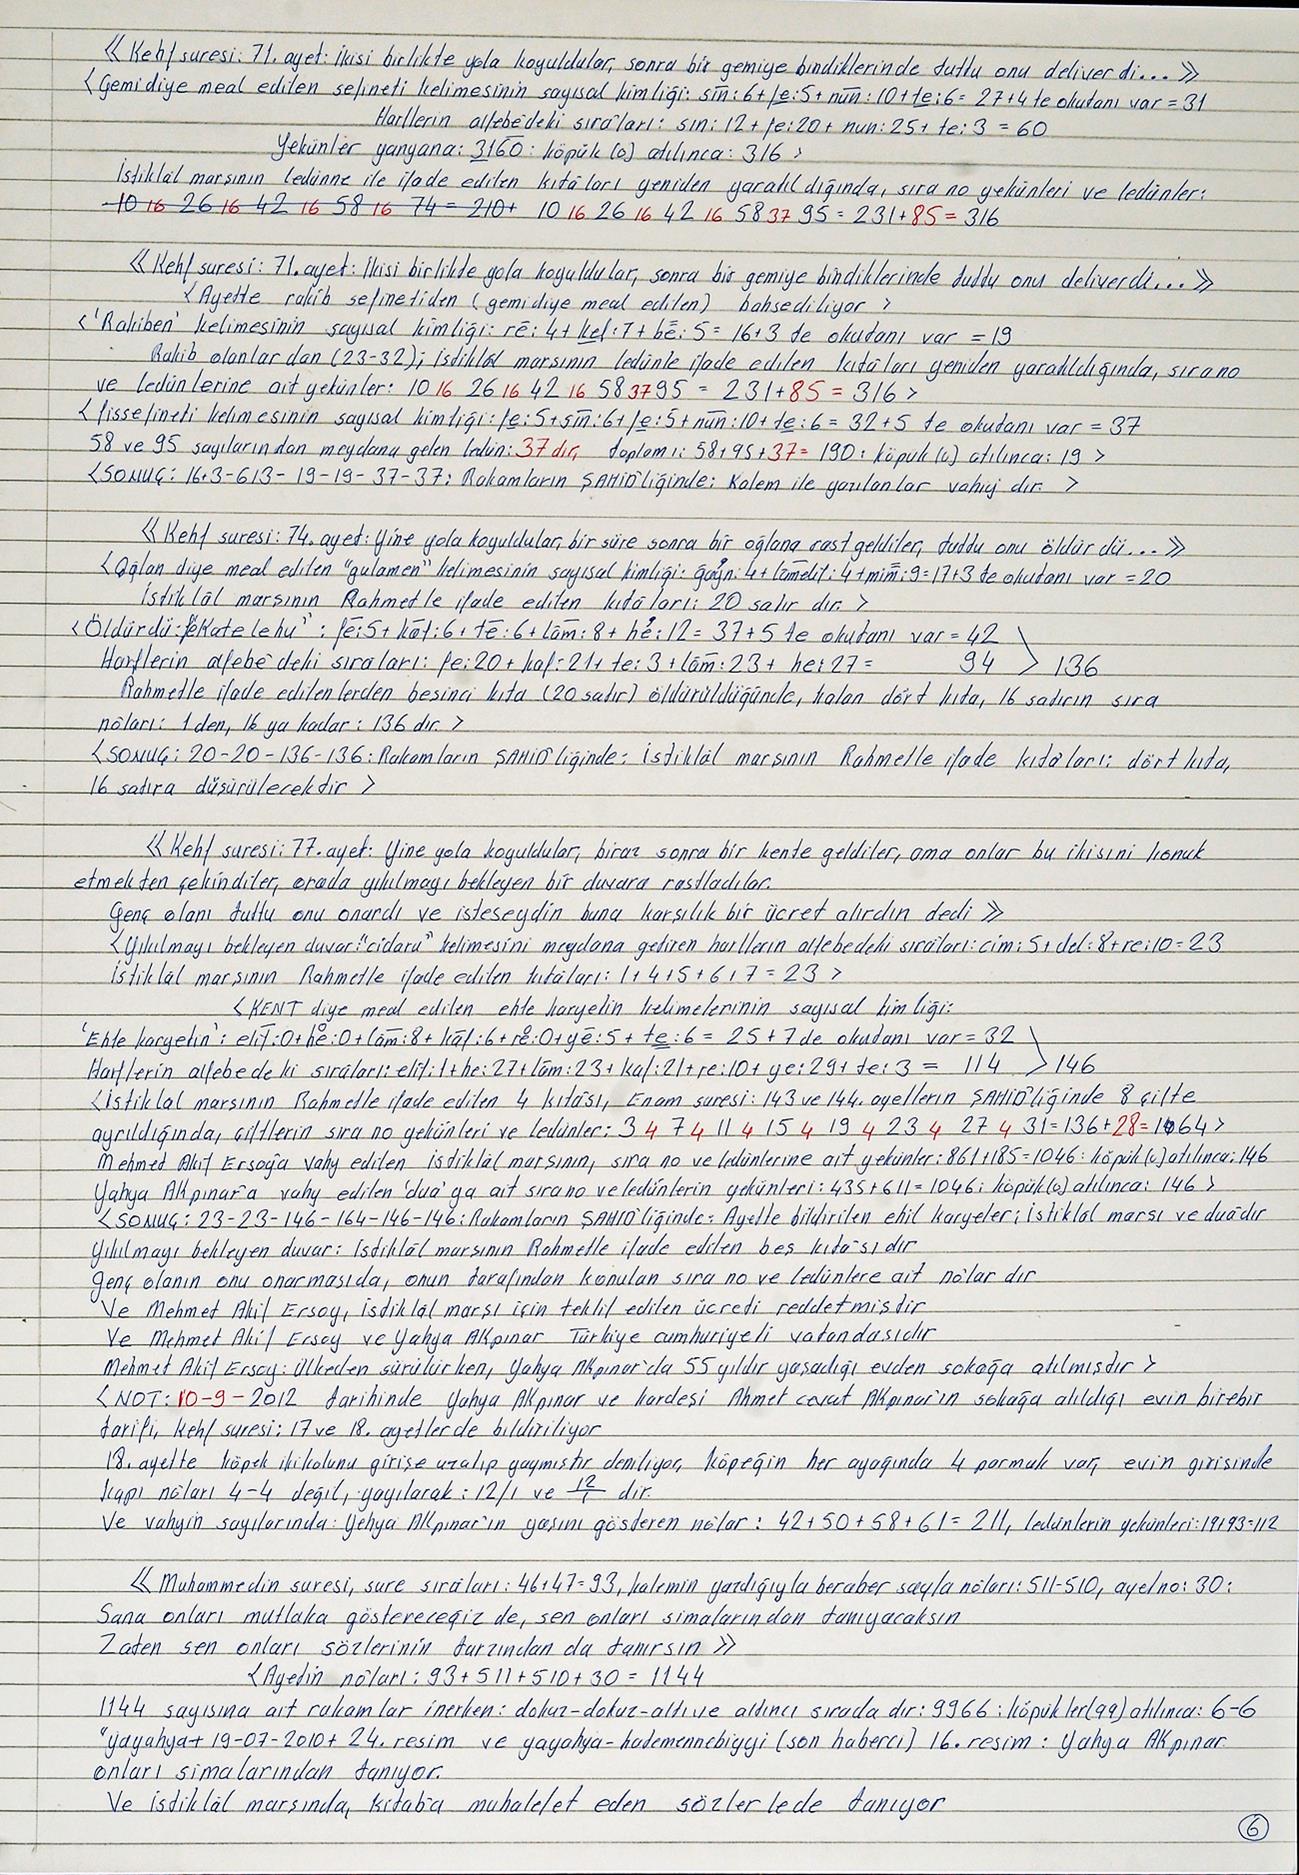 《 Kehf suresi: 71. ayet: İkisi birlikte yola koyuldular, sonra bir gemiye bindiklerinde tuttu onu deliverdi... 》
< Gemi diye meal edilen sefineti kelimesinin sayısal kimliği: sīn: 6 + fe: 5 + nūn: 10 + te: 6 = 27+4 te okutanı var = 31
Harflerin alfebe'deki sıra'ları: sin: 12 + fe: 20 + nun: 25 + te: 3 = 60
Yekünler yanyana: 3160: köpük (o) atılınca: 316 >
İstiklâl marşının ledünne ile ifade edilen kıt'aları yeniden yaratıldığında, sıra no yekünleri ve ledünler:
10 16 26 16 42 16 58 16 74 = 210+ 10 16 26 16 42 16 58 37 95 = 231+85 = 316
《 Kehf suresi: 71. ayet: İkisi birlikte yola koyuldular, sonra bir gemiye bindiklerinde tuttu onu deliverdi... 》
< Ayette rakib sefinetiden (gemi diye meal edilen) bahsediliyor >
< 'Rakiben' kelimesinin sayısal kimliği: rē: 4 + kef: 7 + bē: 5 = 16+3 te okutanı var = 19
Rakib olanlar dan (23-32); istiklâl marşının ledünle ifade edilen kıt'aları yeniden yaratıldığında, sıra no
ve ledünlerine ait yekünler: 10 16 26 16 42 16 58 37 95 = 231+85 = 316 >
< fissefineti kelimesinin sayısal kimliği: fe: 5 + sīn: 6 + fe: 5 + nūn: 10 + te: 6 = 32+5 te okutanı var = 37
58 ve 95 sayılarından meydana gelen ledün: 37 dir, toplamı: 58+95+37= 190: köpük (o) atılınca: 19 >
< SONUÇ: 16+3-613-19-19-37-37: Rakamların ŞAHİD'liğinde: Kalem ile yazılanlar vahiy dir. >
《 Kehf suresi: 74. ayet: Yine yola koyuldular, bir süre sonra bir oğlana rast geldiler, tuttu onu öldürdü... 》
< Oğlan diye meal edilen "gulamen" kelimesinin sayısal kimliği: ğayn: 4 + lāmelif: 4 + mim: 9 = 17+3 te okutanı var = 20
İstiklâl marşının Rahmetle ifade edilen kıt'aları: 20 satır dır. >
< Öldürdü: "feKatelehu": fē: 5 + kāf: 6 + tē: 6 + lām: 8 + he: 12 = 37+5 te okutanı var = 42
Harflerin alfebe'deki sıraları: fe: 20 + kaf: 21 + te: 3 + lām: 23 + he: 27 = 94 > 136
Rahmetle ifade edilenlerden beşinci kıta (20 satır) öldürüldüğünde, kalan dört kıta, 16 satırın sıra
no'ları: 1 den, 16 ya kadar: 136 dır. >
< SONUÇ: 20-20-136-136: Rakamların ŞAHİD'liğinde: İstiklâl marşının Rahmetle ifade kıt'aları: dört kıta,
16 satıra düşürülecektir >
《 Kehf suresi: 77. ayet: Yine yola koyuldular, biraz sonra bir kente geldiler, ama onlar bu ikisini konuk
etmekten çekindiler, orada yıkılmayı bekleyen bir duvara rastladılar.
Genç olanı tuttu onu onardı ve isteseydin buna karşılık bir ücret alırdın dedi 》
< Yıkılmayı bekleyen duvar: "cidaru" kelimesini meydana getiren harflerin alfebedeki sıra'ları: cim: 5 + del: 8 + re: 10 = 23
İstiklâl marşının Rahmetle ifade edilen kıt'aları: 1+4+5+6+7 = 23 >
< KENT diye meal edilen ehle karyetin kelimelerinin sayısal kimliği:
'Ehle karyetin': elif: 0 + he: 0 + lām: 8 + kāf: 6 + re: 0 + yē: 5 + te: 6 = 25+7 de okutanı var = 32
Harflerin alfebedeki sıraları: elif: 1 + he: 27 + lām: 23 + kaf: 21 + re: 10 + ye: 29 + te: 3 = 114 > 146
< İstiklâl marşının Rahmetle ifade edilen 4 kıt'ası, Enam suresi: 143 ve 144. ayetlerin ŞAHİD'liğinde 8 çifte
ayrıldığında, çiftlerin sıra no yekünleri ve ledünler: 3 4 7 4 11 4 15 4 19 4 23 4 27 4 31 = 136+28 = 164 >
Mehmed Akif Ersoy'a vahy edilen istiklâl marşının, sıra no ve ledünlerine ait yekünler: 861+185=1046: köpük (o) atılınca: 146
Yahya AKpınar'a vahy edilen 'dua' ya ait sıra no ve ledünlerin yekünleri: 435+611=1046: köpük (o) atılınca: 146 >
< SONUÇ: 23-23-146-164-146-146: Rakamların ŞAHİD'liğinde: Ayette bildirilen ehil karyeler; İstiklâl marşı ve duâdır
Yıkılmayı bekleyen duvar: İstiklâl marşının Rahmetle ifade edilen beş kıt'a'sı dır
Genç olanın onu onarmasıda, onun tarafından konulan sıra no ve ledünlere ait no'lar dır
Ve Mehmet Akif Ersoy, istiklâl marşı için teklif edilen ücreti reddetmiştir
Ve Mehmet Akif Ersoy ve Yahya AKpınar Türkiye cumhuriyeti vatandaşıdır
Mehmet Akif Ersoy: Ülkeden sürülürken, Yahya AKpınar'da 55 yıldır yaşadığı evden sokağa atılmıştır >
< NOT: 10-9-2012 tarihinde Yahya AKpınar ve kardeşi Ahmet cevat AKpınar'ın sokağa atıldığı evin birebir
tarifi, Kehf suresi: 17 ve 18. ayetlerde bildiriliyor
18. ayette köpek iki kolunu girişe uzatıp yaymıştır deniliyor, köpeğin her ayağında 4 parmak var, evin girişinde
kapı no'ları 4-4 değil, yayılarak: 12/1 ve 12/1 dir.
Ve vahyin sayılarında: Yahya AKpınar'ın yaşını gösteren no'lar: 42+50+58+61= 211, ledünlerin yekünleri: 19+93=112
《 Muhammedin suresi, sure sıraları: 46+47=93, kalemin yazdığıyla beraber sayfa no'ları: 511-510, ayet no: 30:
Sana onları mutlaka göstereceğiz de, sen onları simalarından tanıyacaksın
Zaten sen onları sözlerinin tarzından da tanırsın 》
< Ayetin no'ları: 93+511+510+30 = 1144
1144 sayısına ait rakamlar inerken: dokuz-dokuz-altı ve altıncı sırada dır: 9966: köpükler (99) atılınca: 6-6
"yayahya + 19-07-2010 + 24. resim ve yayahya-hatemennebiyyi (son haberci) 16. resim: Yahya AKpınar
onları simalarından tanıyor.
Ve istiklâl marşında, kitab'a muhalefet eden sözlerlede tanıyor
6